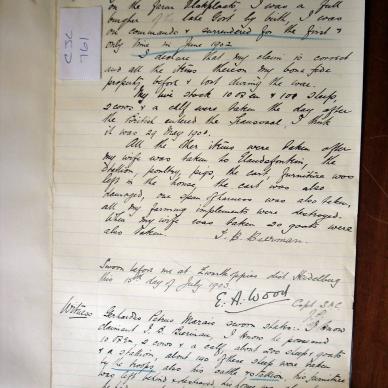 C J C
761
on the farm Vlakplaats, I was a full
burgher of the late Govt by birth, I was
on commando & surrendered for the first &
only time in June 1902.
I declare that my claim is correct
and all the items therein my bona fide
property before & lost during the war.
My live stock 10 oxen & 100 sheep,
2 cows & a calf were taken the day after
the British entered the Transvaal, I think
it was 29 May 1900.
All the other items were taken after
my wife was taken to
stallion, poultry, pigs, the cart, furniture was
left in the house, the cart was also
damaged, one span of harness was also taken,
all my farming implements were destroyed.
When my wife was taken 20 goats were
also taken.
Sworn before me at dist Heidelberg
this 15th day of July 1903.
E. A. Wood
Capt. S.A.C.
Witness Petrus Marais sworn states: I know
claimant, I know he possessed
10 oxen, 2 cows & a calf, about 100 sheep, goats
& a stallion, about 100 of these sheep was taken
by the troops also his cattle & stallion, his furniture
was left behind &